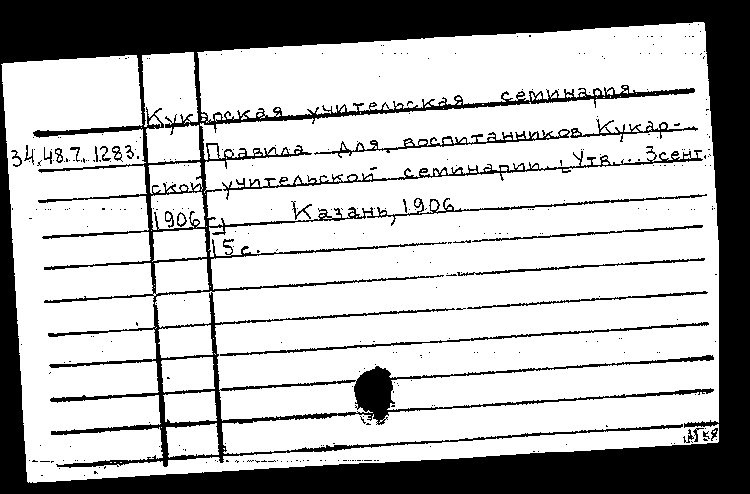 Кукарская учительская семинария.
34.48.7.1283. Правила для воспитанников Кукар-
ской учительской семинарии. [Утв. .. 3 сент.
1906 г.] Казань, 1906.
15 с.